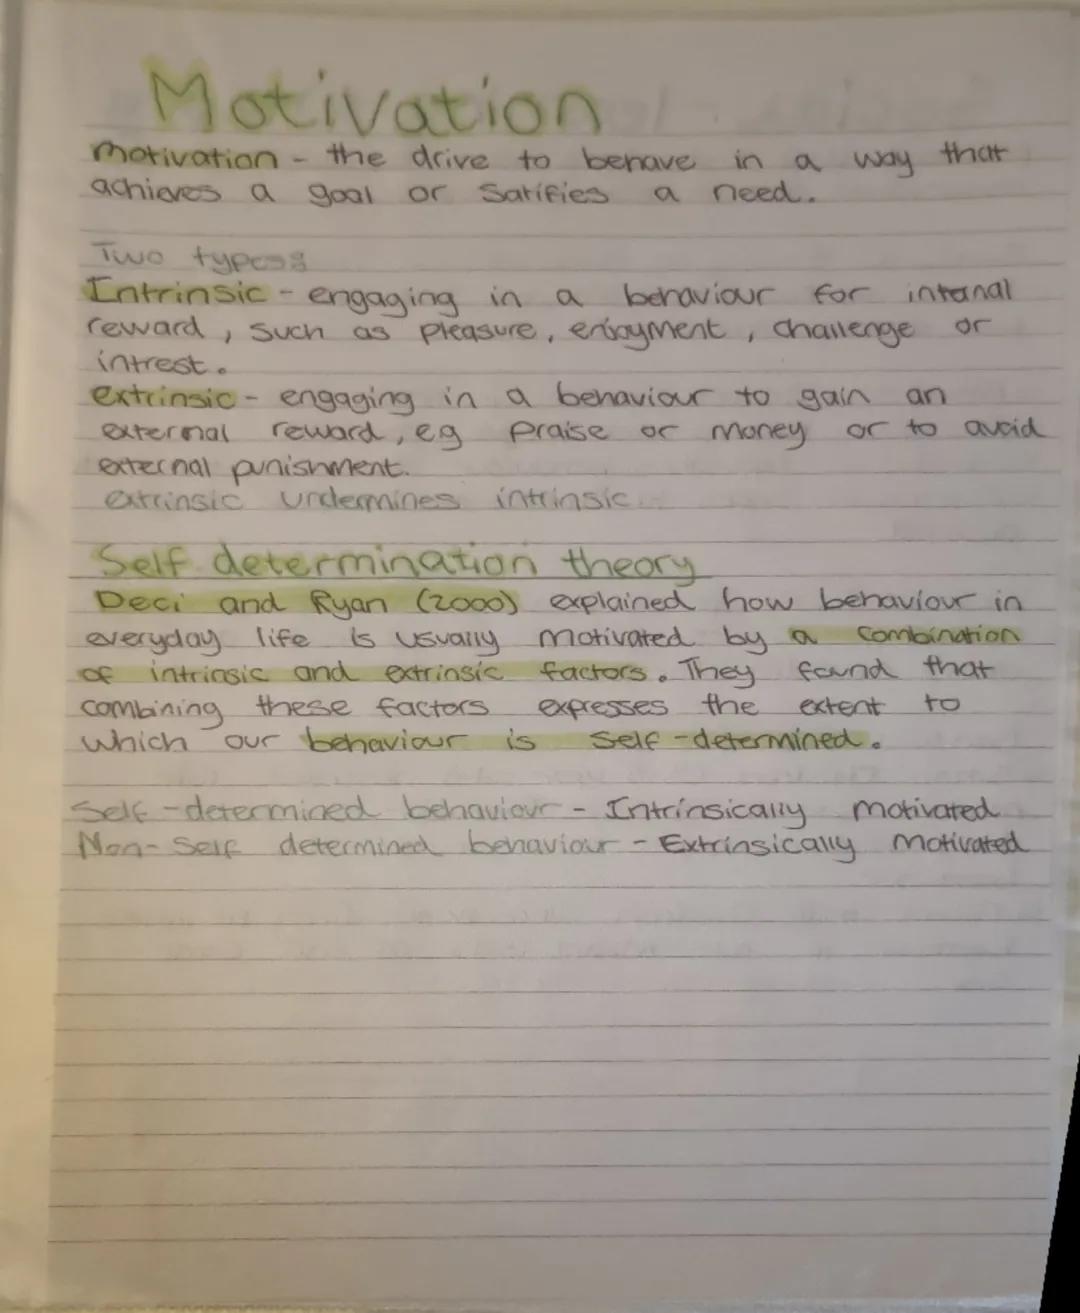 Motivation
motivation - the drive to behave in a way that
achieves a goal or Satifies a need.
Two types:
Intrinsic - engaging in a behaviour for intenal
reward, such as pleasure, enjoyment, challenge or
intrest.
extrinsic - engaging in a behaviour to gain an
external reward, eg praise or money or to avoid
external punishment.
extrinsic undermines intrinsic.
Self determination theory
Deci and Ryan (2000) explained how behaviour in
everyday life is usually motivated by a combination
of intrinsic and extrinsic factors. They found that
combining these factors expresses the extent to
which our behaviour is self-determined.
Self-determined behaviour - Intrinsically motivated
Non-Self determined behaviour - Extrinsically motivated